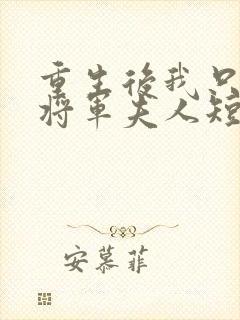 重生後我只
將軍夫人短
安慕菲